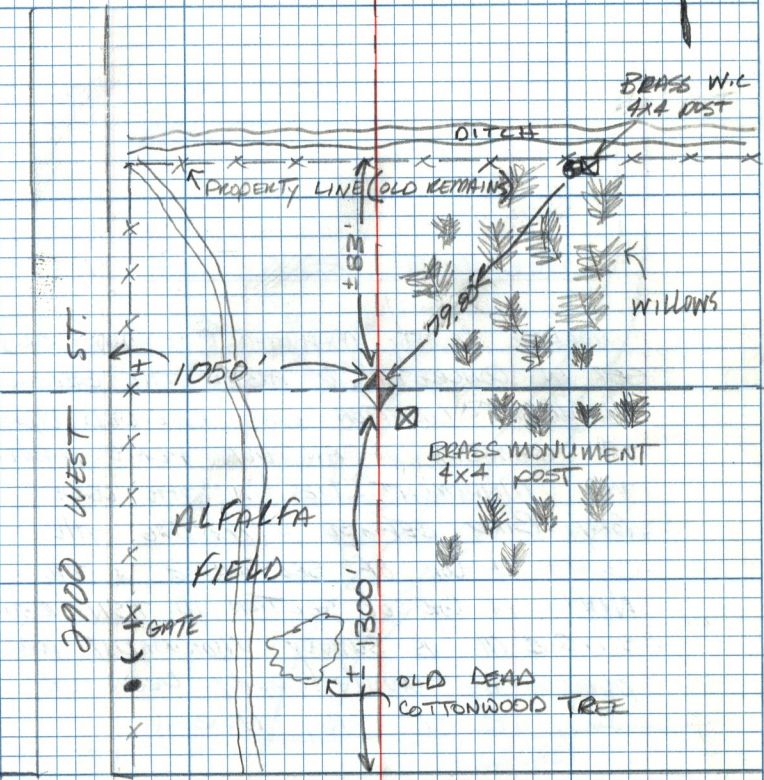 BRASS W.C
4x4 post
DITCH
PROPERTY LINE (OLD REMAINS)
±83'
79.80'
WILLOWS
± 1050'
2900 WEST ST.
BRASS MONUMENT
4x4 post
ALFALFA
FIELD
GATE
± 1300'
OLD DEAD
COTTONWOOD TREE